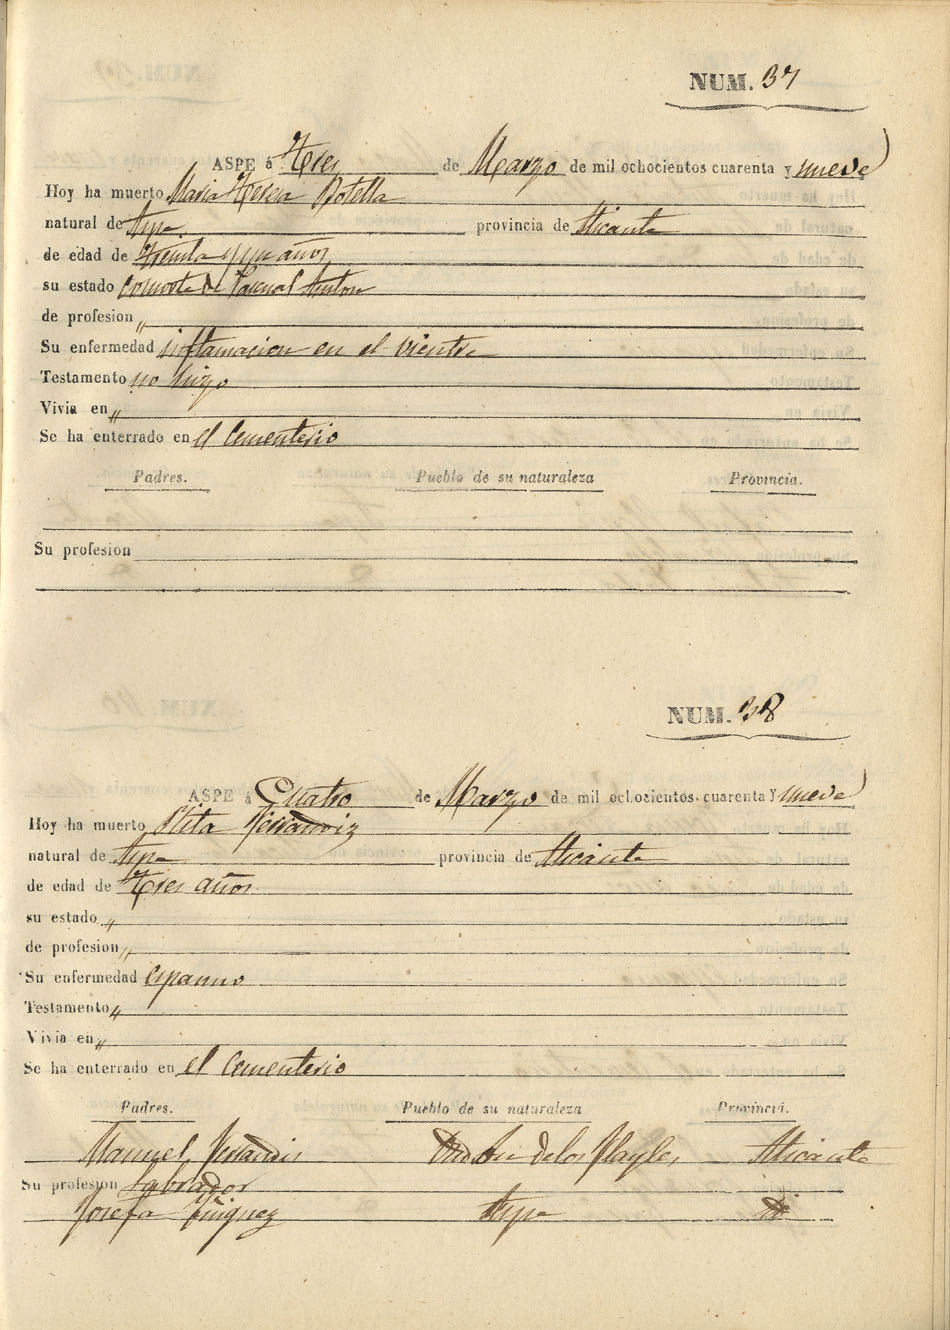 NUM. 37
ASPE á Tres de Marzo de mil ochocientos cuarenta y nueve
Hoy ha muerto Maria Teresa Botella
natural de Aspe provincia de Alicante
de edad de treinta y un años
su estado consorte de Pascual Anton
de profesion "
Su enfermedad inflamacion en el vientre
Testamento no hizo
Vivia en "
Se ha enterrado en el Cementerio
Padres. Pueblo de su naturaleza Provincia.
Su profesion
NUM. 38
ASPE á Cuatro de Marzo de mil ochocientos cuarenta y nueve
Hoy ha muerto Rita Ferrandiz
natural de Aspe provincia de Alicante
de edad de Tres años
su estado "
de profesion "
Su enfermedad espasmo
Testamento "
Vivia en "
Se ha enterrado en el Cementerio
Padres. Pueblo de su naturaleza Provincia.
Manuel Ferrandis de los Flayles Alicante
Su profesion Labrador
Josefa Iñiguez Aspe id